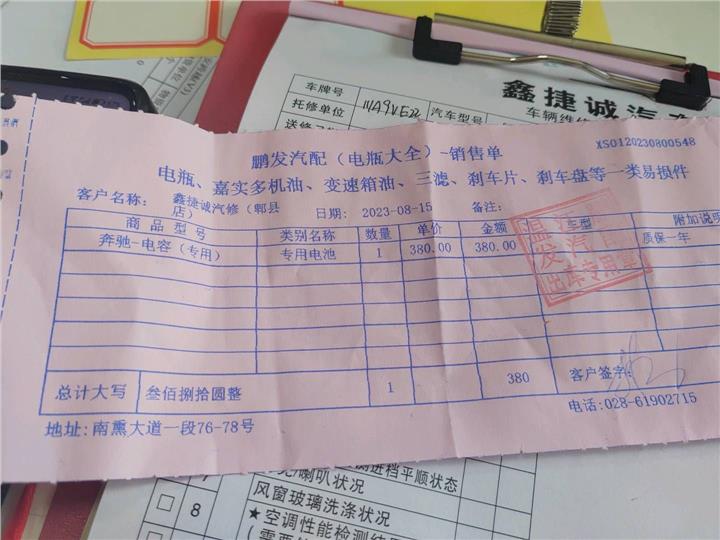 车牌号
鑫捷诚汽
托修单位 川A9VE22 汽车型号
车辆维
鹏发汽配（电瓶大全）-销售单
XS0120230800548
电瓶、嘉实多机油、变速箱油、三滤、刹车片、刹车盘等一类易损件
客户名称： 鑫捷诚汽修（郫县店） 日期: 2023-08-15 备注:
商品型号 类别名称 数量 单价 金额 车型 附加说明
奔驰-电容（专用） 专用电池 1 380.00 380.00 质保一年
出车专用章
总计大写 叁佰捌拾圆整 1 380 客户签字:
地址:南熏大道一段76-78号 电话:028-61902715
喇叭状况
进档平顺状态
7 风窗玻璃洗涤状况
8 ★空调性能检测